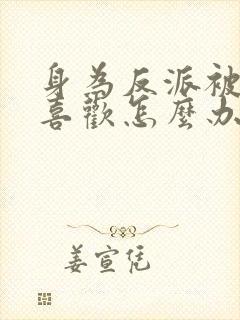 身為反派被
喜歡怎麼办
姜宣凭